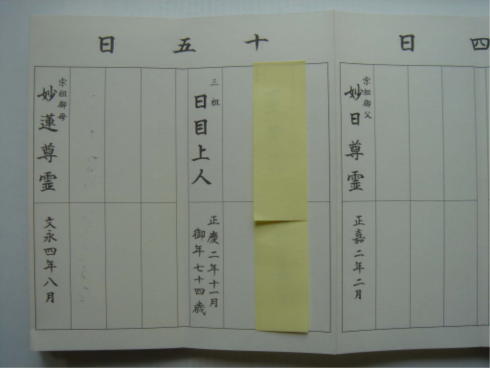 四日
宗祖御父
妙日尊霊
正嘉二年二月
十五日
三祖
日目上人
正慶二年十一月
御年七十四歳
宗祖御母
妙蓮尊霊
文永四年八月